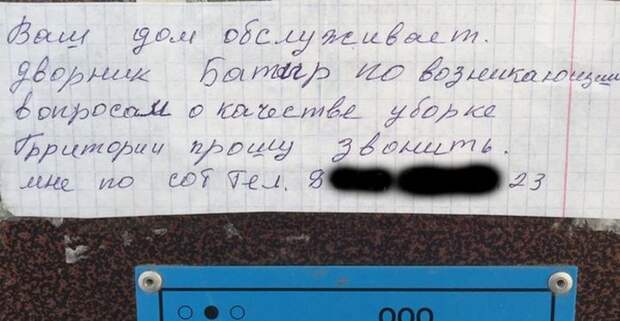 Ваш дом обслуживает.
дворник Батыр по возникающим
вопросам о качестве уборке
Трритории прошу звонить.
мне по сот тел. 8 23
ООО